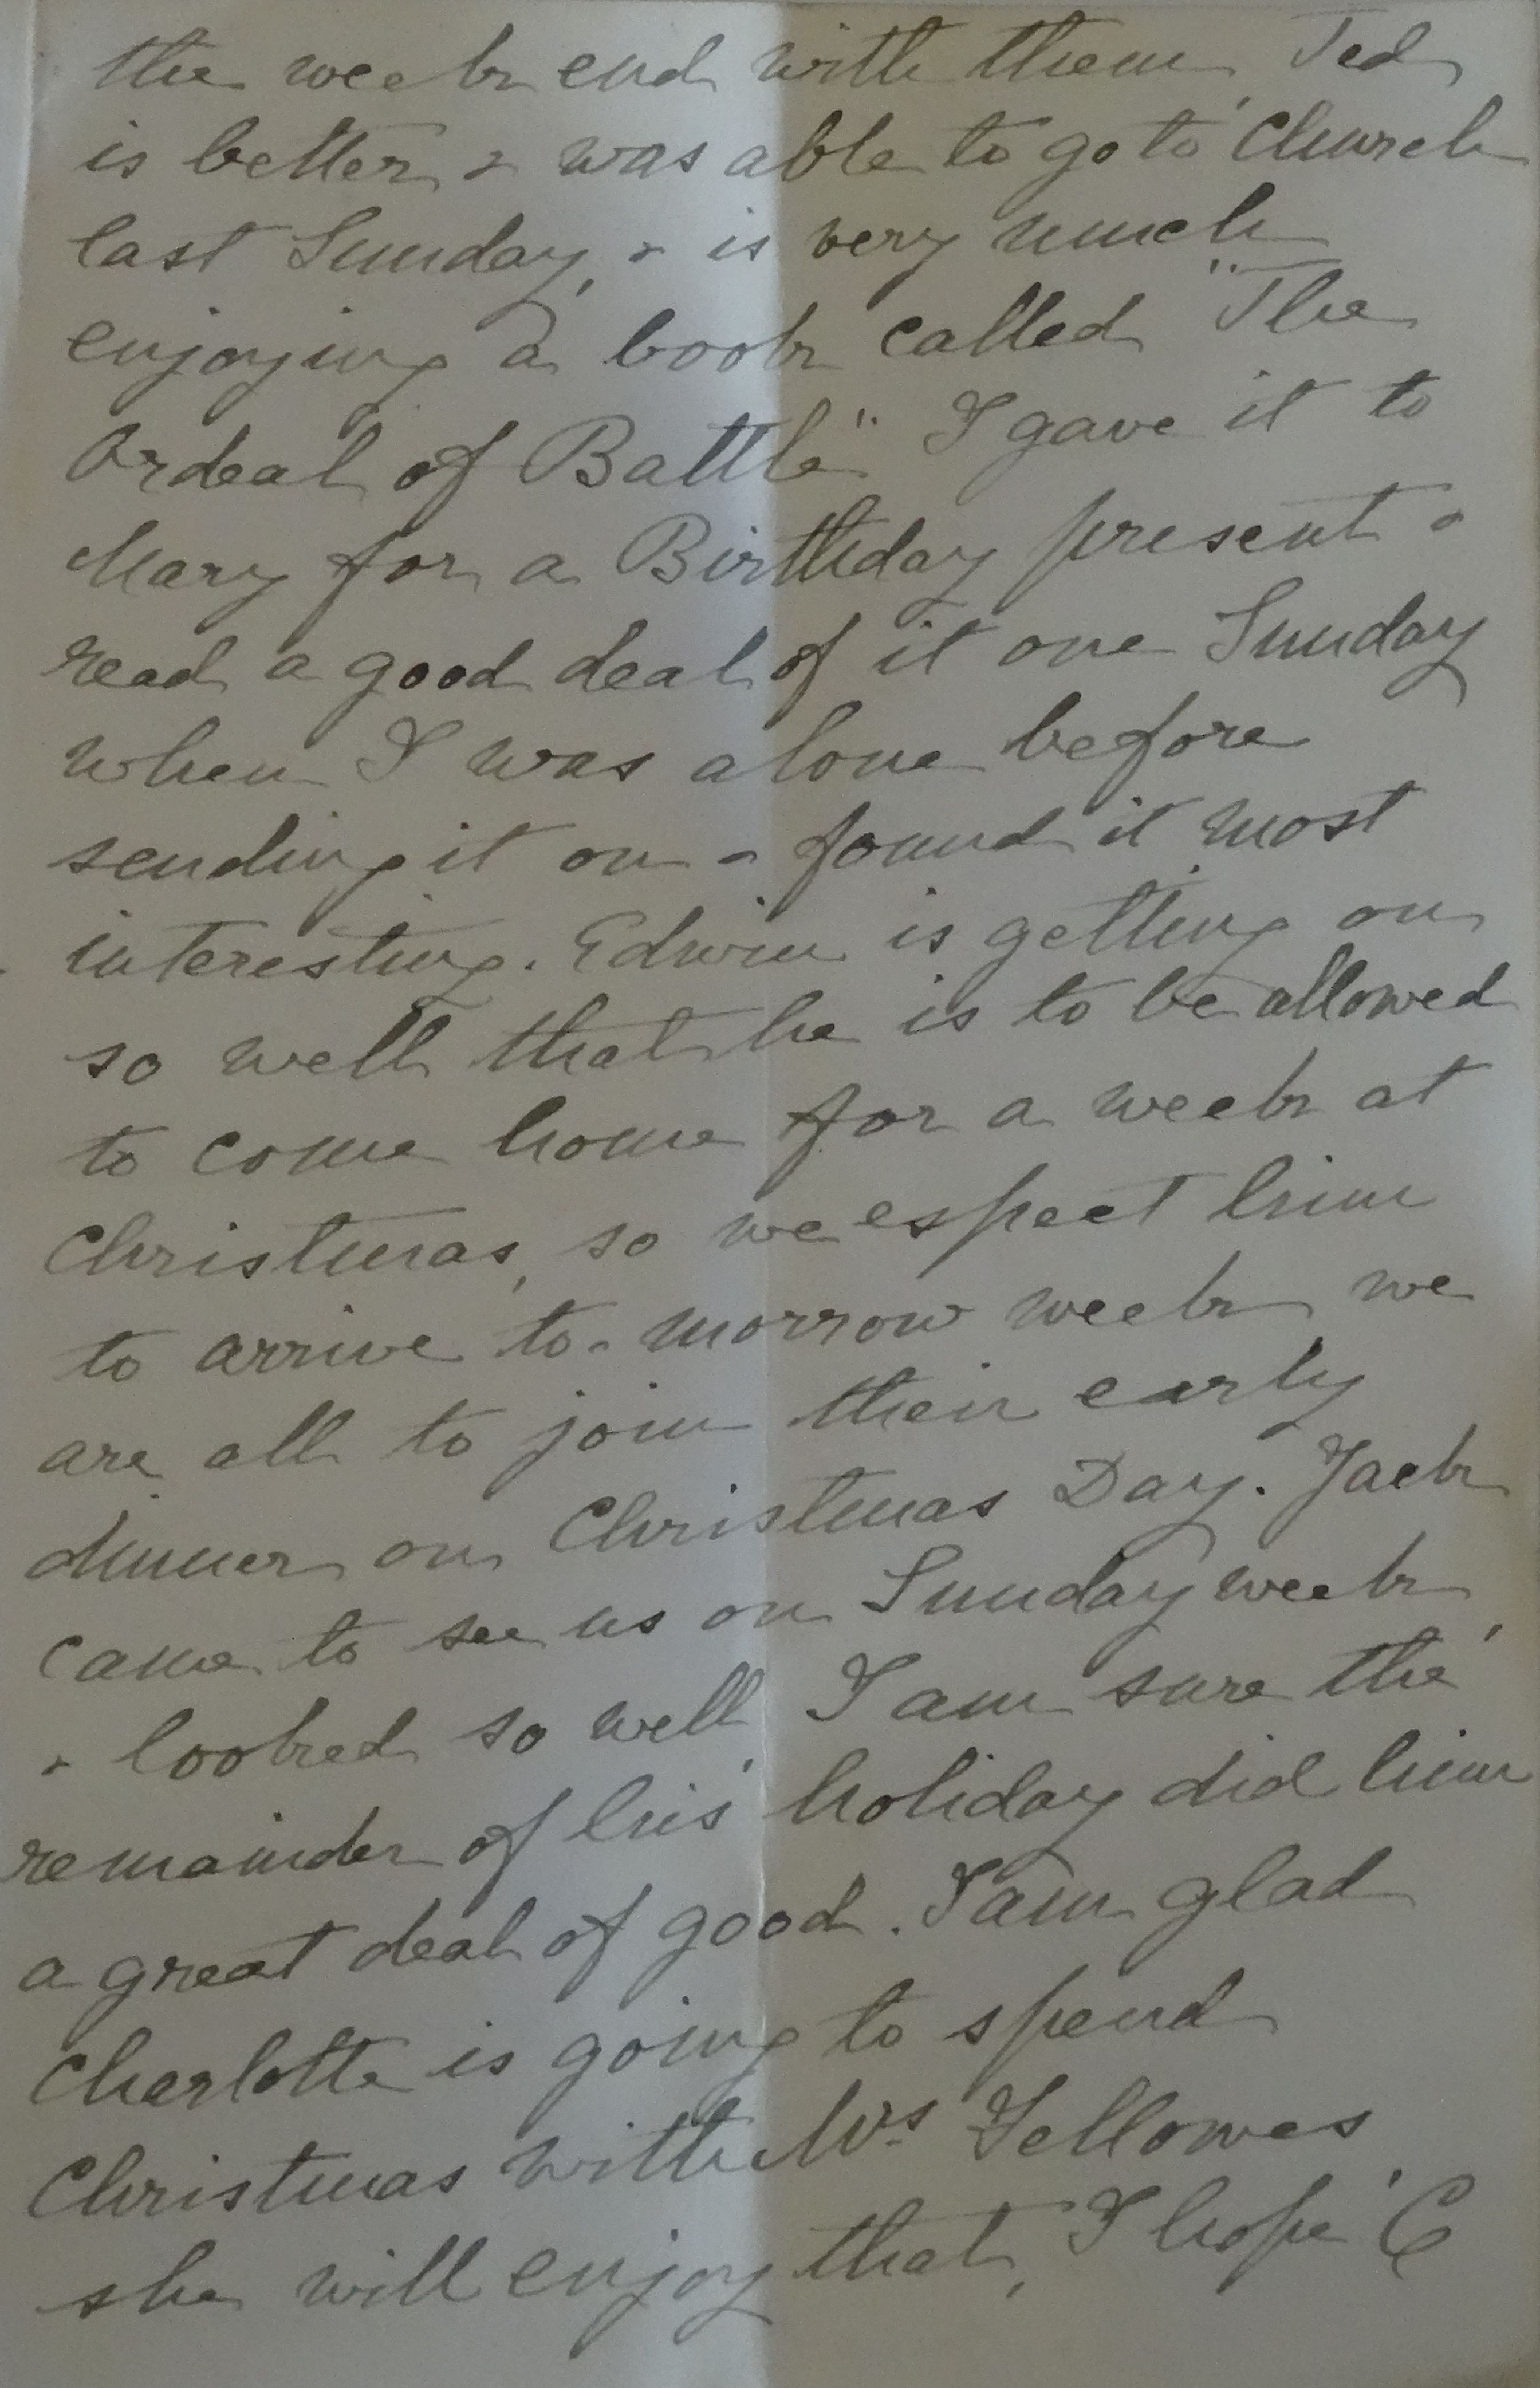 the week end with them, Ted
is better & was able to go to Church
last Sunday, & is very much
enjoying a book called "The
Ordeal of Battle" I gave it to
Mary for a Birthday present &
read a good deal of it one Sunday
when I was alone before
sending it on & found it most
interesting. Edwin is getting on
so well that he is to be allowed
to come home for a week at
Christmas, so we expect him
to arrive to-morrow week we
are all to join their early
dinner on Christmas Day. Jack
came to see us on Sunday week,
& looked so well, I am sure the
remainder of his holiday did him
a great deal of good. I am glad
Charlotte is going to spend
Christmas with Mrs Fellowes,
she will enjoy that, I hope C